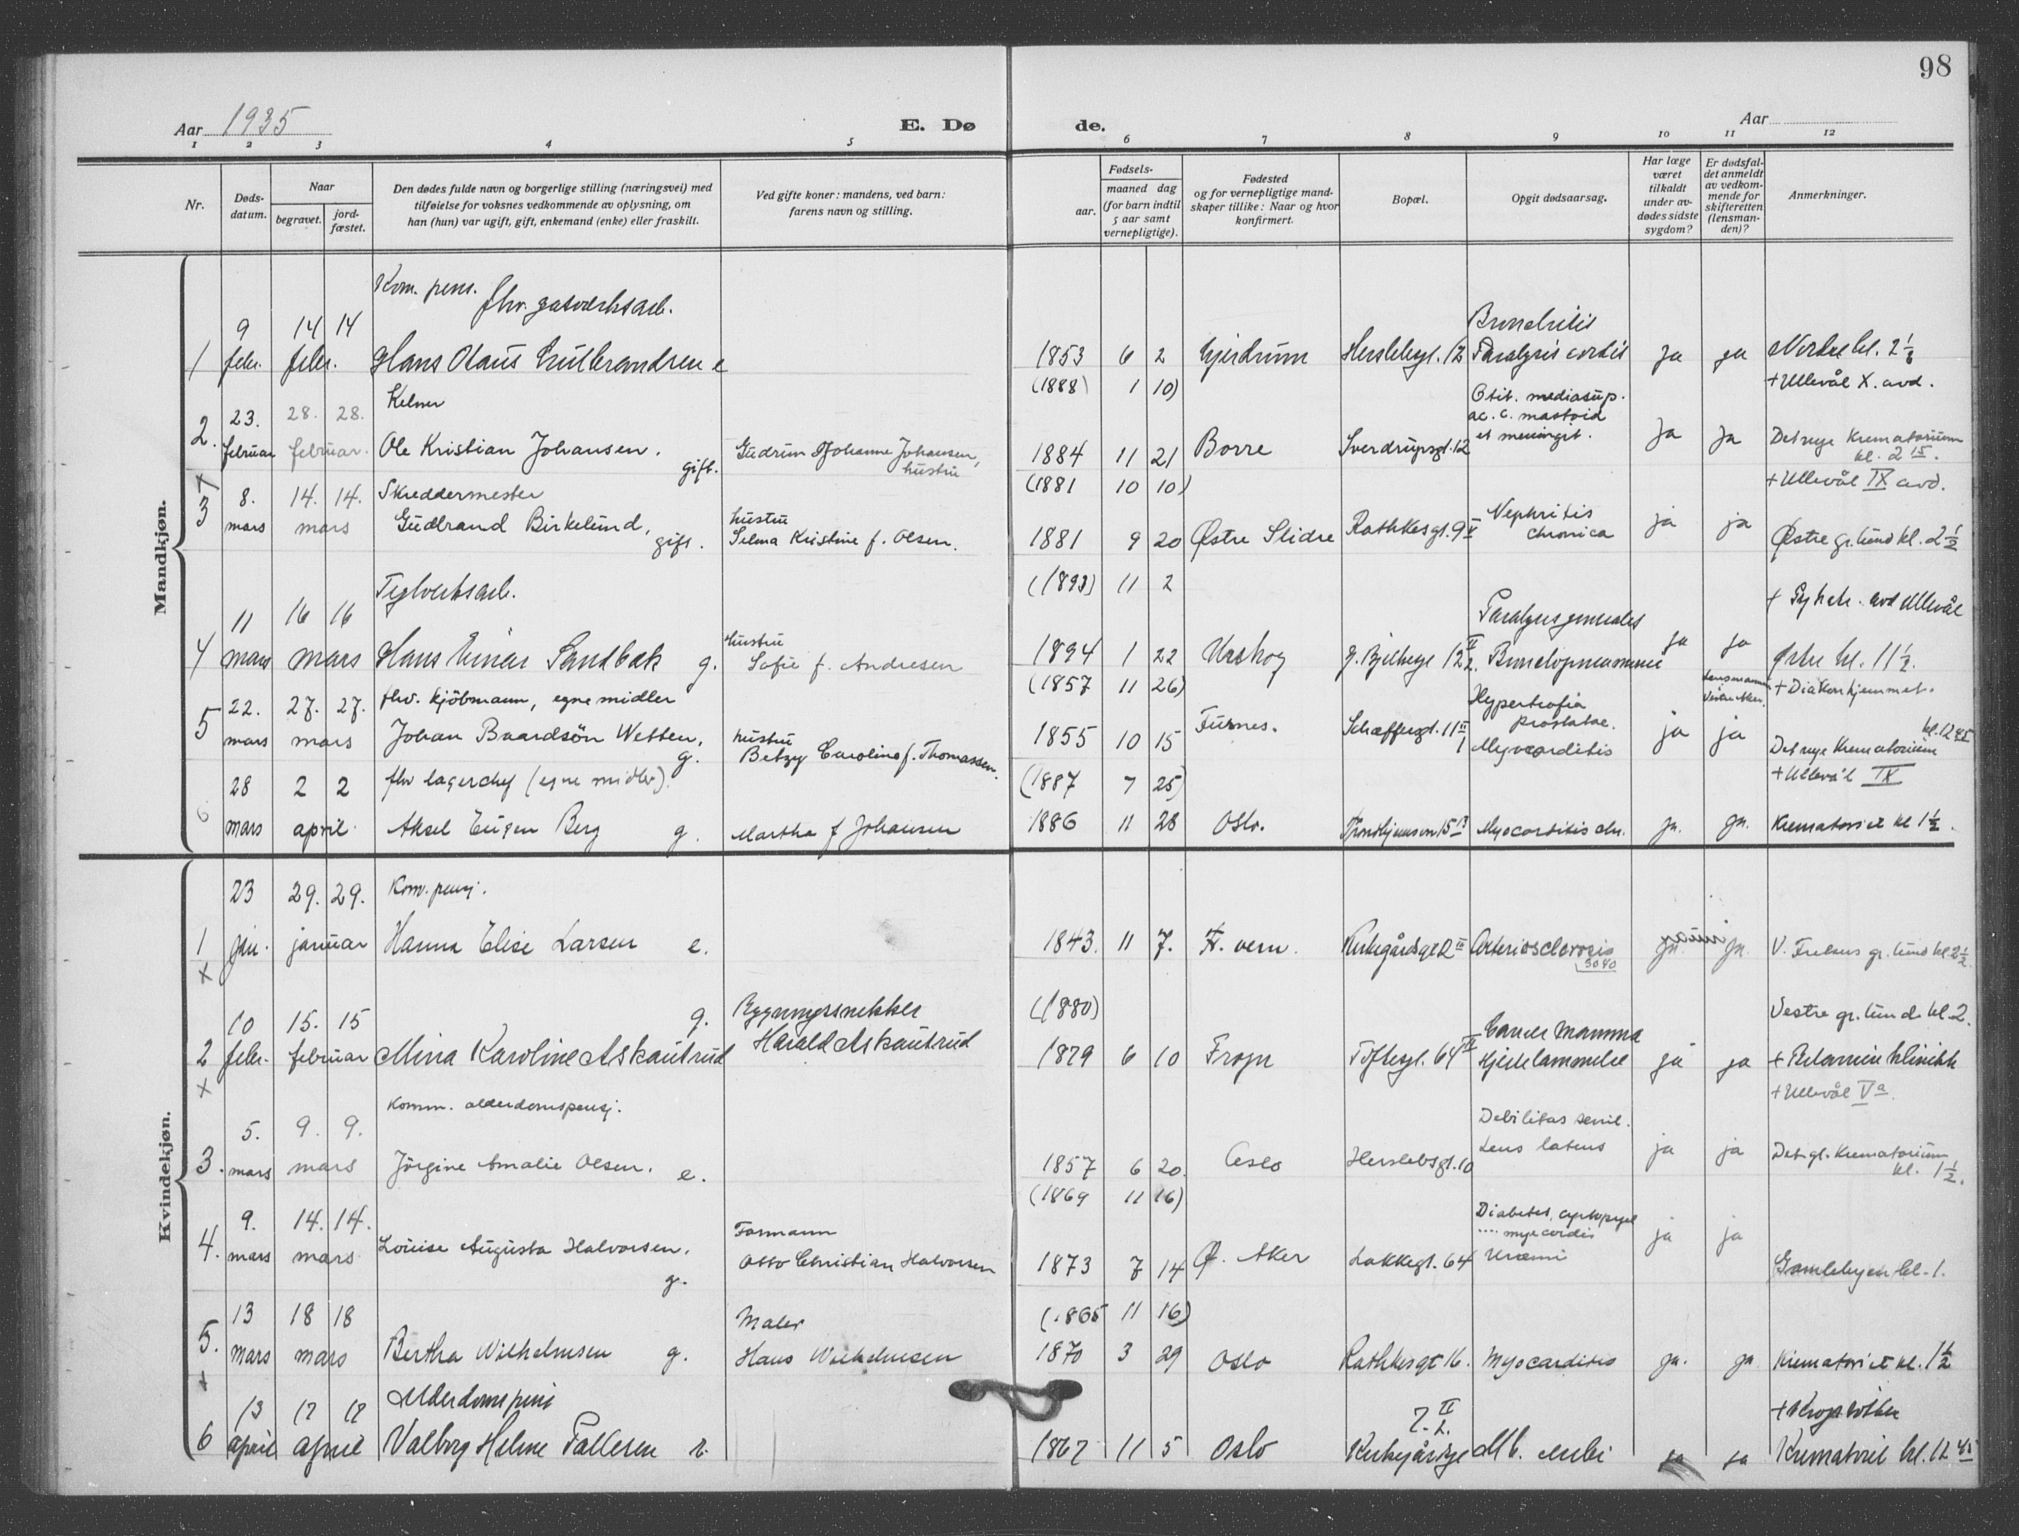 98
Aar 1935
E. Dø
de.
Aar
1 2 3 4 5 6 7 8 9 10 11 12
Nr.
Døds-
datum.
Naar
begravet.
jord-
fæstet.
Den dødes fulde navn og borgerlige stilling (næringsvei) med
tilføielse for voksnes vedkommende av oplysning, om
han (hun) var ugift, gift, enkemand (enke) eller fraskilt.
Ved gifte koner: mandens, ved barn:
farens navn og stilling.
Fødsels-
aar.
maaned dag
(for barn indtil
5 aar samt
vernepligtige).
Fødested
og for vernepligtige mand-
skaper tillike: Naar og hvor
konfirmert.
Bopæl.
Opgit dødsaarsag.
Har læge
været
tilkaldt
under av-
dødes sidste
sygdom?
Er dødsfal-
det anmeldt
av vedkom-
mende for
skifteretten
(lensman-
den)?
Anmerkninger.
Mandkjøn.
Kom. pens. fhv. gasverksarb.
9 14 14 Bronchitis
1 febr. febr. Hans Olaus Gulbrandsen e 1853 6 2 Gjerdrum Herslebsgt. 12 Paralysis cordis ja ja Nordre kl. 2½
(1888) 1 10) + Ullevål X. avd.
Kelner
Otit. media sup.
ac. c. mastoid
et meningit.
23. 28. 28.
2. februar februar Ole Kristian Johansen. gift. Gudrun Johanne Johansen, hustru 1884 11 21 Borre Sverdrupsgt. 12 ja ja Det nye Krematorium
kl. 2 15.
(1881 10 10) + Ullevål IX avd.
8. 14. 14. Skreddermester
3 mars mars Gudbrand Birkelund, gift. hustru
Selma Kristine f. Olsen. 1881 9 20 Østre Slidre Rathkesgt. 9 Nephritis
chronica ja ja Østre gr.lund kl. 2½
(1893) 11 2
Teglverksarb.
11 16 16 Paralysis generales
4 mars mars Hans Einar Sandbæk g. hustru
Sofie f. Andresen 1894 1 22 Urskog Bronchopneumonie ja ja Østre kl. 11½.
(1857 11 26) + Diakonhjemmet.
22. 27. 27. fhv. kjøbmann, egne midler Hypertrofia
prostatae.
5 mars mars Johan Baardsøn Wetten, g. hustru
Betzy Caroline f. Thomassen. 1855 10 15 Furnes. Schæffersgt. 11 Myocarditis ja ja Det nye Krematorium kl. 12 45
(1887 7 25) + Ullevål IX
28 2 2 fhv lagerchef (egne midler).
6 mars april Aksel Eugen Berg g. Martha f Johansen 1886 11 28 Oslo. Myocarditis chr. ja. ja. Krematoriet kl 1½.
Kvindekjøn.
23 29. 29. Kom. pensj.
1 jan. januar Hanna Elise Larsen e. 1843. 11 7. Kirkegårdsgt 2 III Arteriosclerosis ja. ja. V. Frelsers gr. lund kl. 2½
10 15. 15 g. Bygningssnekker (1880) Vestre gr. lund kl. 2.
2 febr. februar Mina Karoline Askautrud Harald Askautrud 1879 6 10 Frogn Toftesgt. 64 Cancer mamma
Hjertelammelse ja ja + Betanien klinikk
+ Ullevål Va.
Komm. alderdomspensj.
5. 9. 9. Debilitas senil.
3. mars mars Jørgine Amalie Olsen. e. 1857 6 20. Oslo Herslebsgt. 10 Lues latens ja ja Det gl. Krematorium
kl. 1½.
(1869 11 16)
9. 14. 14. Formann Diabetes,
4. mars mars Louise Augusta Halvorsen. g. Otto Christian Halvorsen 1873 7 14 Ø. Aker Lakkegt. 64 Uræmi ja ja Gamlebyen kl. 1.
13 18 18 Maler (1865 11 16)
5. mars mars Bertha Wilhelmsen g. Hans Wilhelmsen 1870 3 29 Oslo Rathkesgt 16. Myocarditis ja. ja Krematoriet kl. 1½
13 17 17 Alderdomspens
6 april april Valborg Helene Pallesen 1867 11 5 Oslo Kirkegårdsgt Mb. cordis ja ja Krematoriet kl. 12 45